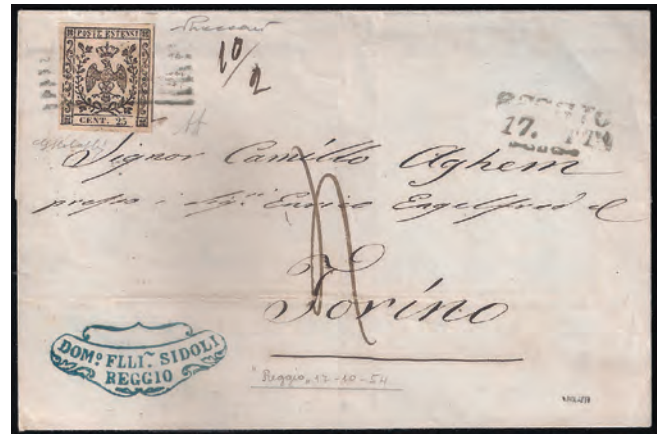 POSTE ESTENSI
CENT. 25
10/2
REGGIO
17.
Signor Camillo Aghem
presso i Sigri Enrico Engelfred e C
Torino
DOMº FLLI SIDOLI
REGGIO
Reggio, 17-10-54